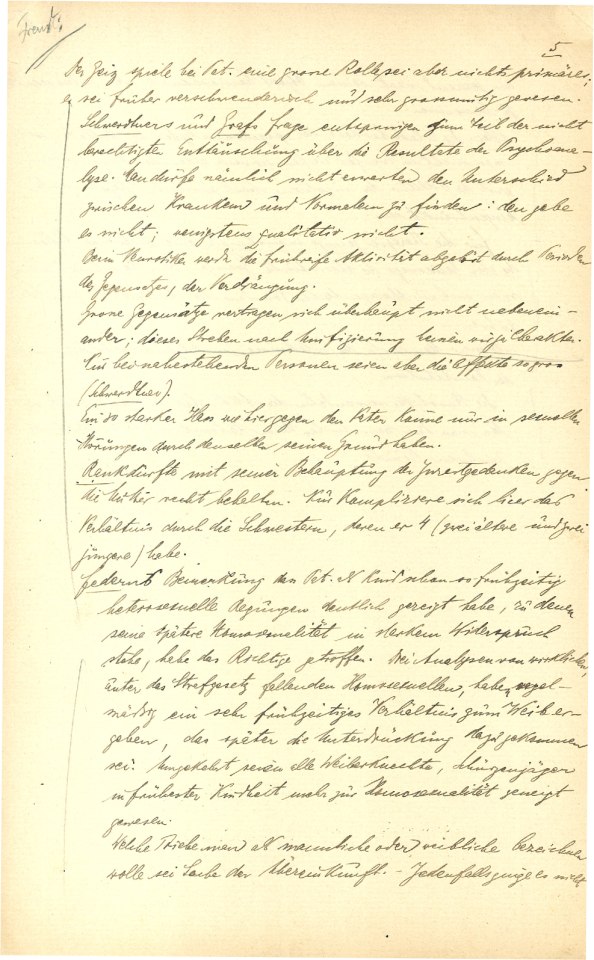 Freud:
5
Der Geiz spiele bei Pat. eine grosse Rolle, sei aber nichts primäres;
er sei früher verschwenderisch und sehr grossmütig gewesen.
Schwerdtners und Grafs Frage entspringen zum Teil der nicht
berechtigten Enttäuschung über die Resultate der Psychoana-
lyse. Man dürfe nämlich nicht erwarten den Unterschied
zwischen Kranken und Normalem zu finden: den gebe
es nicht; wenigstens qualitativ nicht.
Beim Neurotiker werde die frühreife Aktivität abgelöst durch Perioden
des Gegensatzes, der Verdrängung.
Grosse Gegensätze vertragen sich überhaupt nicht nebenein-
ander; dieses Streben nach Unifizierung heissen wir: Charakter.
Nur bei nahestehenden Personen seien aber die Affekte so gross
(Schwerdtner).
Ein so starker Hass wie hier gegen den Vater könne nur in sexuellen
Störungen durch denselben seinen Grund haben.
Rank dürfte mit seiner Behauptung der Inzestgedanken gegen
die Mutter recht behalten. Nur kompliziere sich hier das
Verhältnis durch die Schwestern, deren er 4 (zwei ältere und zwei
jüngere) habe.
Federns Bemerkung dass Pat. als Kind schon so frühzeitig
heterosexuelle Regungen deutlich gezeigt habe, zu denen
seine spätere Homosexualität in starkem Widerspruch
stehe, habe das Richtige getroffen. Drei Analysen von wirklichen,
unter das Strafgesetz fallenden Homosexuellen, haben regel-
mässig ein sehr frühzeitiges Verhältnis zum Weib er-
geben, das später die Unterdrückung dazugekommen
sei. Umgekehrt seien alle Weiberknechte, Schürzenjäger
in frühester Kindheit mehr zur Homosexualität geneigt
gewesen.
Welche Triebe man als männliche oder weibliche bezeichnen
wolle sei Sache der Übereinkunft. – Jedenfalls ginge es nicht